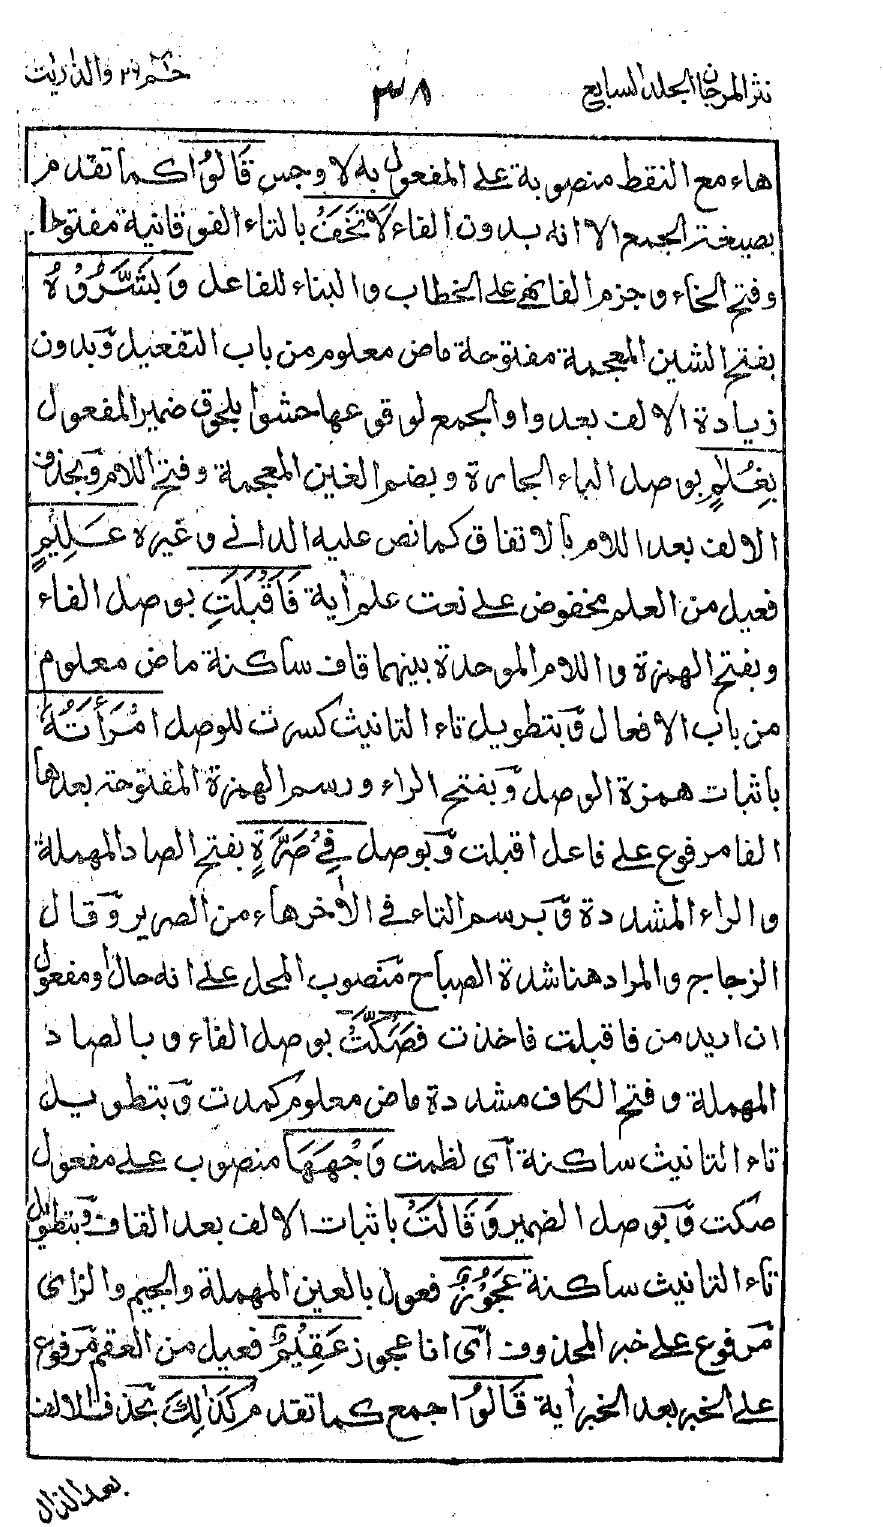 نثر المرجان الجلد السابع
٣٠٨
حٰم ٢٦ والذاريت
هاء مع النقط منصوبة على المفعول به لاوجس قَالُوا كما تقدم
بصيغة الجمع الا انه بدون الفاء لَا تَخَفْ بالتاء الفوقانية مفتوحة
وفتح الخاء وجزم الفاء نهي على الخطاب والبناء للفاعل وَبَشَّرُوْهُ
بفتح الشين المعجمة مفتوحة ماض معلوم من باب التفعيل وبدون
زيادة الالف بعد واو الجمع لوقوعها حشوا بلحوق ضمير المفعول
بِغُلٰمٍ بوصل الباء الجارة وبضم الغين المعجمة وفتح اللام وبحذف
الالف بعد اللام بالاتفاق كما نص عليه الداني وغيره عَلِيْمٍ
فعيل من العلم مخفوض على نعت غلم أية فَاَقْبَلَتِ بوصل الفاء
وبفتح الهمزة واللام الموحدة بينهما قاف ساكنة ماض معلوم
من باب الافعال وبتطويل تاء التانيث كسرت للوصل امْرَأَتُهٗ
باثبات همزة الوصل وبفتح الراء ورسم الهمزة المفتوحة بعدها
الفا مرفوع على فاعل اقبلت وبوصل فِيْ صَرَّةٍ بفتح الصاد المهملة
والراء المشددة وبرسم التاء في الأخر هاء من الصرير وقال
الزجاج والمراد هنا شدة الصياح منصوب المحل على انه حال او مفعول
ان اريد من فاقبلت فاخذت فَصَكَّتْ بوصل الفاء وبالصاد
المهملة وفتح الكاف مشددة ماض معلوم كمدت وبتطويل
تاء التانيث ساكنة أى لطمت وَجْهَهَا منصوب على مفعول
صكت وبوصل الضمير وَقَالَتْ باثبات الالف بعد القاف وبتطويل
تاء التانيث ساكنة عَجُوْزٌ فعول بالعين المهملة والجيم والزاى
مرفوع على خبر المحذوف أى انا عجوز عَقِيْمٌ فعيل من العقم مرفوع
على الخبر بعد الخبر أية قَالُوْا جمع كما تقدم كَذٰلِكَ بحذف الالف
بعد الذال